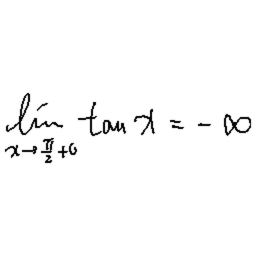 \lim_{x \to \frac{\pi}{2} + 0} \tan x = -\infty